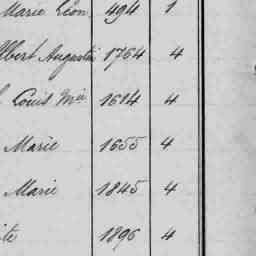 Marie Léon 494 1
Albert Augustin 1764 4
Louis Mie 1614 4
Marie 1655 4
Marie 1845 4
ite 1896 4